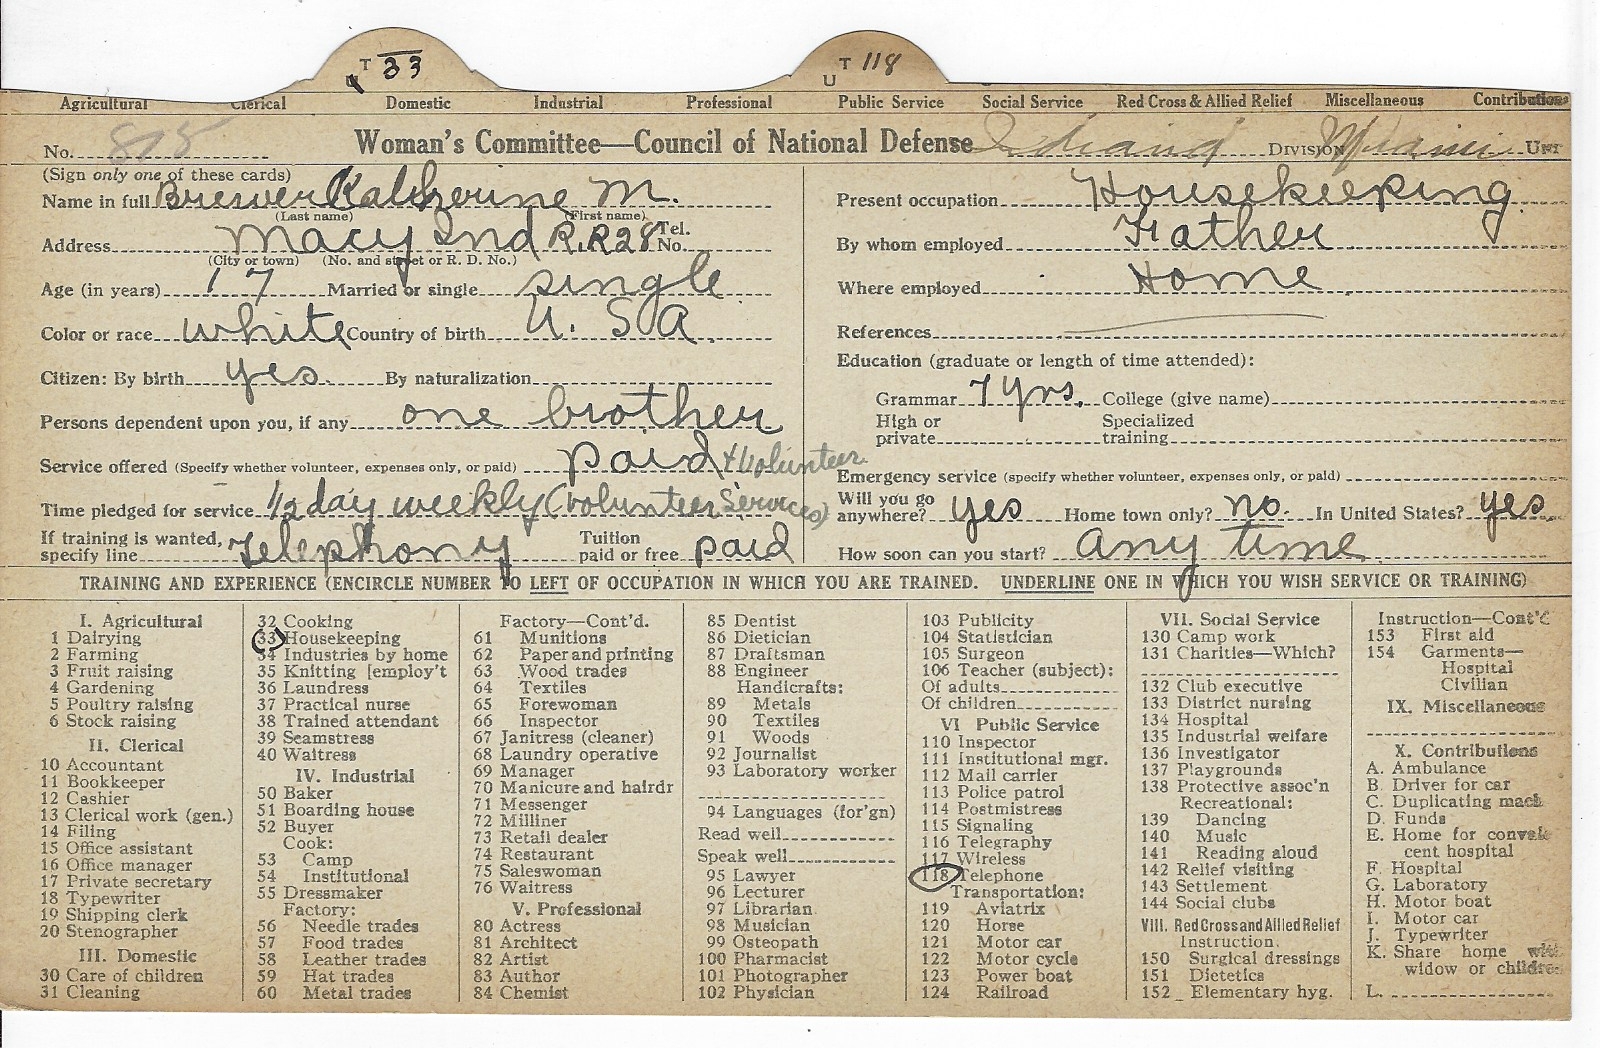 T 33
U T 118
Agricultural Clerical Domestic Industrial Professional Public Service Social Service Red Cross & Allied Relief Miscellaneous Contributions
No. 815 Woman's Committee—Council of National Defense Indiana Division Miami Unit
(Sign only one of these cards)
Name in full Brewer Katherine M.
(Last name) (First name)
Address Macy Ind R.R 28 Tel. No.
(City or town) (No. and street or R. D. No.)
Age (in years) 17 Married or single single
Color or race white Country of birth U. S A.
Citizen: By birth yes. By naturalization
Persons dependent upon you, if any one brother
Service offered (Specify whether volunteer, expenses only, or paid) paid + Volunteer
Time pledged for service 1/2 day weekly (Volunteer Services)
If training is wanted, specify line Telephony Tuition paid or free paid
Present occupation Housekeeping
By whom employed Father
Where employed Home
References
Education (graduate or length of time attended):
Grammar 7 yrs. College (give name)
High or private Specialized training
Emergency service (specify whether volunteer, expenses only, or paid)
Will you go anywhere? yes Home town only? no. In United States? yes
How soon can you start? any time
TRAINING AND EXPERIENCE (ENCIRCLE NUMBER TO LEFT OF OCCUPATION IN WHICH YOU ARE TRAINED. UNDERLINE ONE IN WHICH YOU WISH SERVICE OR TRAINING)
I. Agricultural
1 Dairying
2 Farming
3 Fruit raising
4 Gardening
5 Poultry raising
6 Stock raising
II. Clerical
10 Accountant
11 Bookkeeper
12 Cashier
13 Clerical work (gen.)
14 Filing
15 Office assistant
16 Office manager
17 Private secretary
18 Typewriter
19 Shipping clerk
20 Stenographer
III. Domestic
30 Care of children
31 Cleaning
32 Cooking
33 Housekeeping
34 Industries by home
35 Knitting [employ't
36 Laundress
37 Practical nurse
38 Trained attendant
39 Seamstress
40 Waitress
IV. Industrial
50 Baker
51 Boarding house
52 Buyer
Cook:
53 Camp
54 Institutional
55 Dressmaker
Factory:
56 Needle trades
57 Food trades
58 Leather trades
59 Hat trades
60 Metal trades
Factory—Cont'd.
61 Munitions
62 Paper and printing
63 Wood trades
64 Textiles
65 Forewoman
66 Inspector
67 Janitress (cleaner)
68 Laundry operative
69 Manager
70 Manicure and hairdr
71 Messenger
72 Milliner
73 Retail dealer
74 Restaurant
75 Saleswoman
76 Waitress
V. Professional
80 Actress
81 Architect
82 Artist
83 Author
84 Chemist
85 Dentist
86 Dietician
87 Draftsman
88 Engineer
Handicrafts:
89 Metals
90 Textiles
91 Woods
92 Journalist
93 Laboratory worker
94 Languages (for'gn)
Read well
Speak well
95 Lawyer
96 Lecturer
97 Librarian
98 Musician
99 Osteopath
100 Pharmacist
101 Photographer
102 Physician
103 Publicity
104 Statistician
105 Surgeon
106 Teacher (subject):
Of adults
Of children
VI Public Service
110 Inspector
111 Institutional mgr.
112 Mail carrier
113 Police patrol
114 Postmistress
115 Signaling
116 Telegraphy
117 Wireless
118 Telephone
Transportation:
119 Aviatrix
120 Horse
121 Motor car
122 Motor cycle
123 Power boat
124 Railroad
VII. Social Service
130 Camp work
131 Charities—Which?
132 Club executive
133 District nursing
134 Hospital
135 Industrial welfare
136 Investigator
137 Playgrounds
138 Protective assoc'n
Recreational:
139 Dancing
140 Music
141 Reading aloud
142 Relief visiting
143 Settlement
144 Social clubs
VIII. Red Cross and Allied Relief
Instruction.
150 Surgical dressings
151 Dietetics
152 Elementary hyg.
Instruction—Cont'd
153 First aid
154 Garments—
Hospital
Civilian
IX. Miscellaneous
X. Contributions
A. Ambulance
B. Driver for car
C. Duplicating mach
D. Funds
E. Home for convales
cent hospital
F. Hospital
G. Laboratory
H. Motor boat
I. Motor car
J. Typewriter
K. Share home with
widow or children
L.